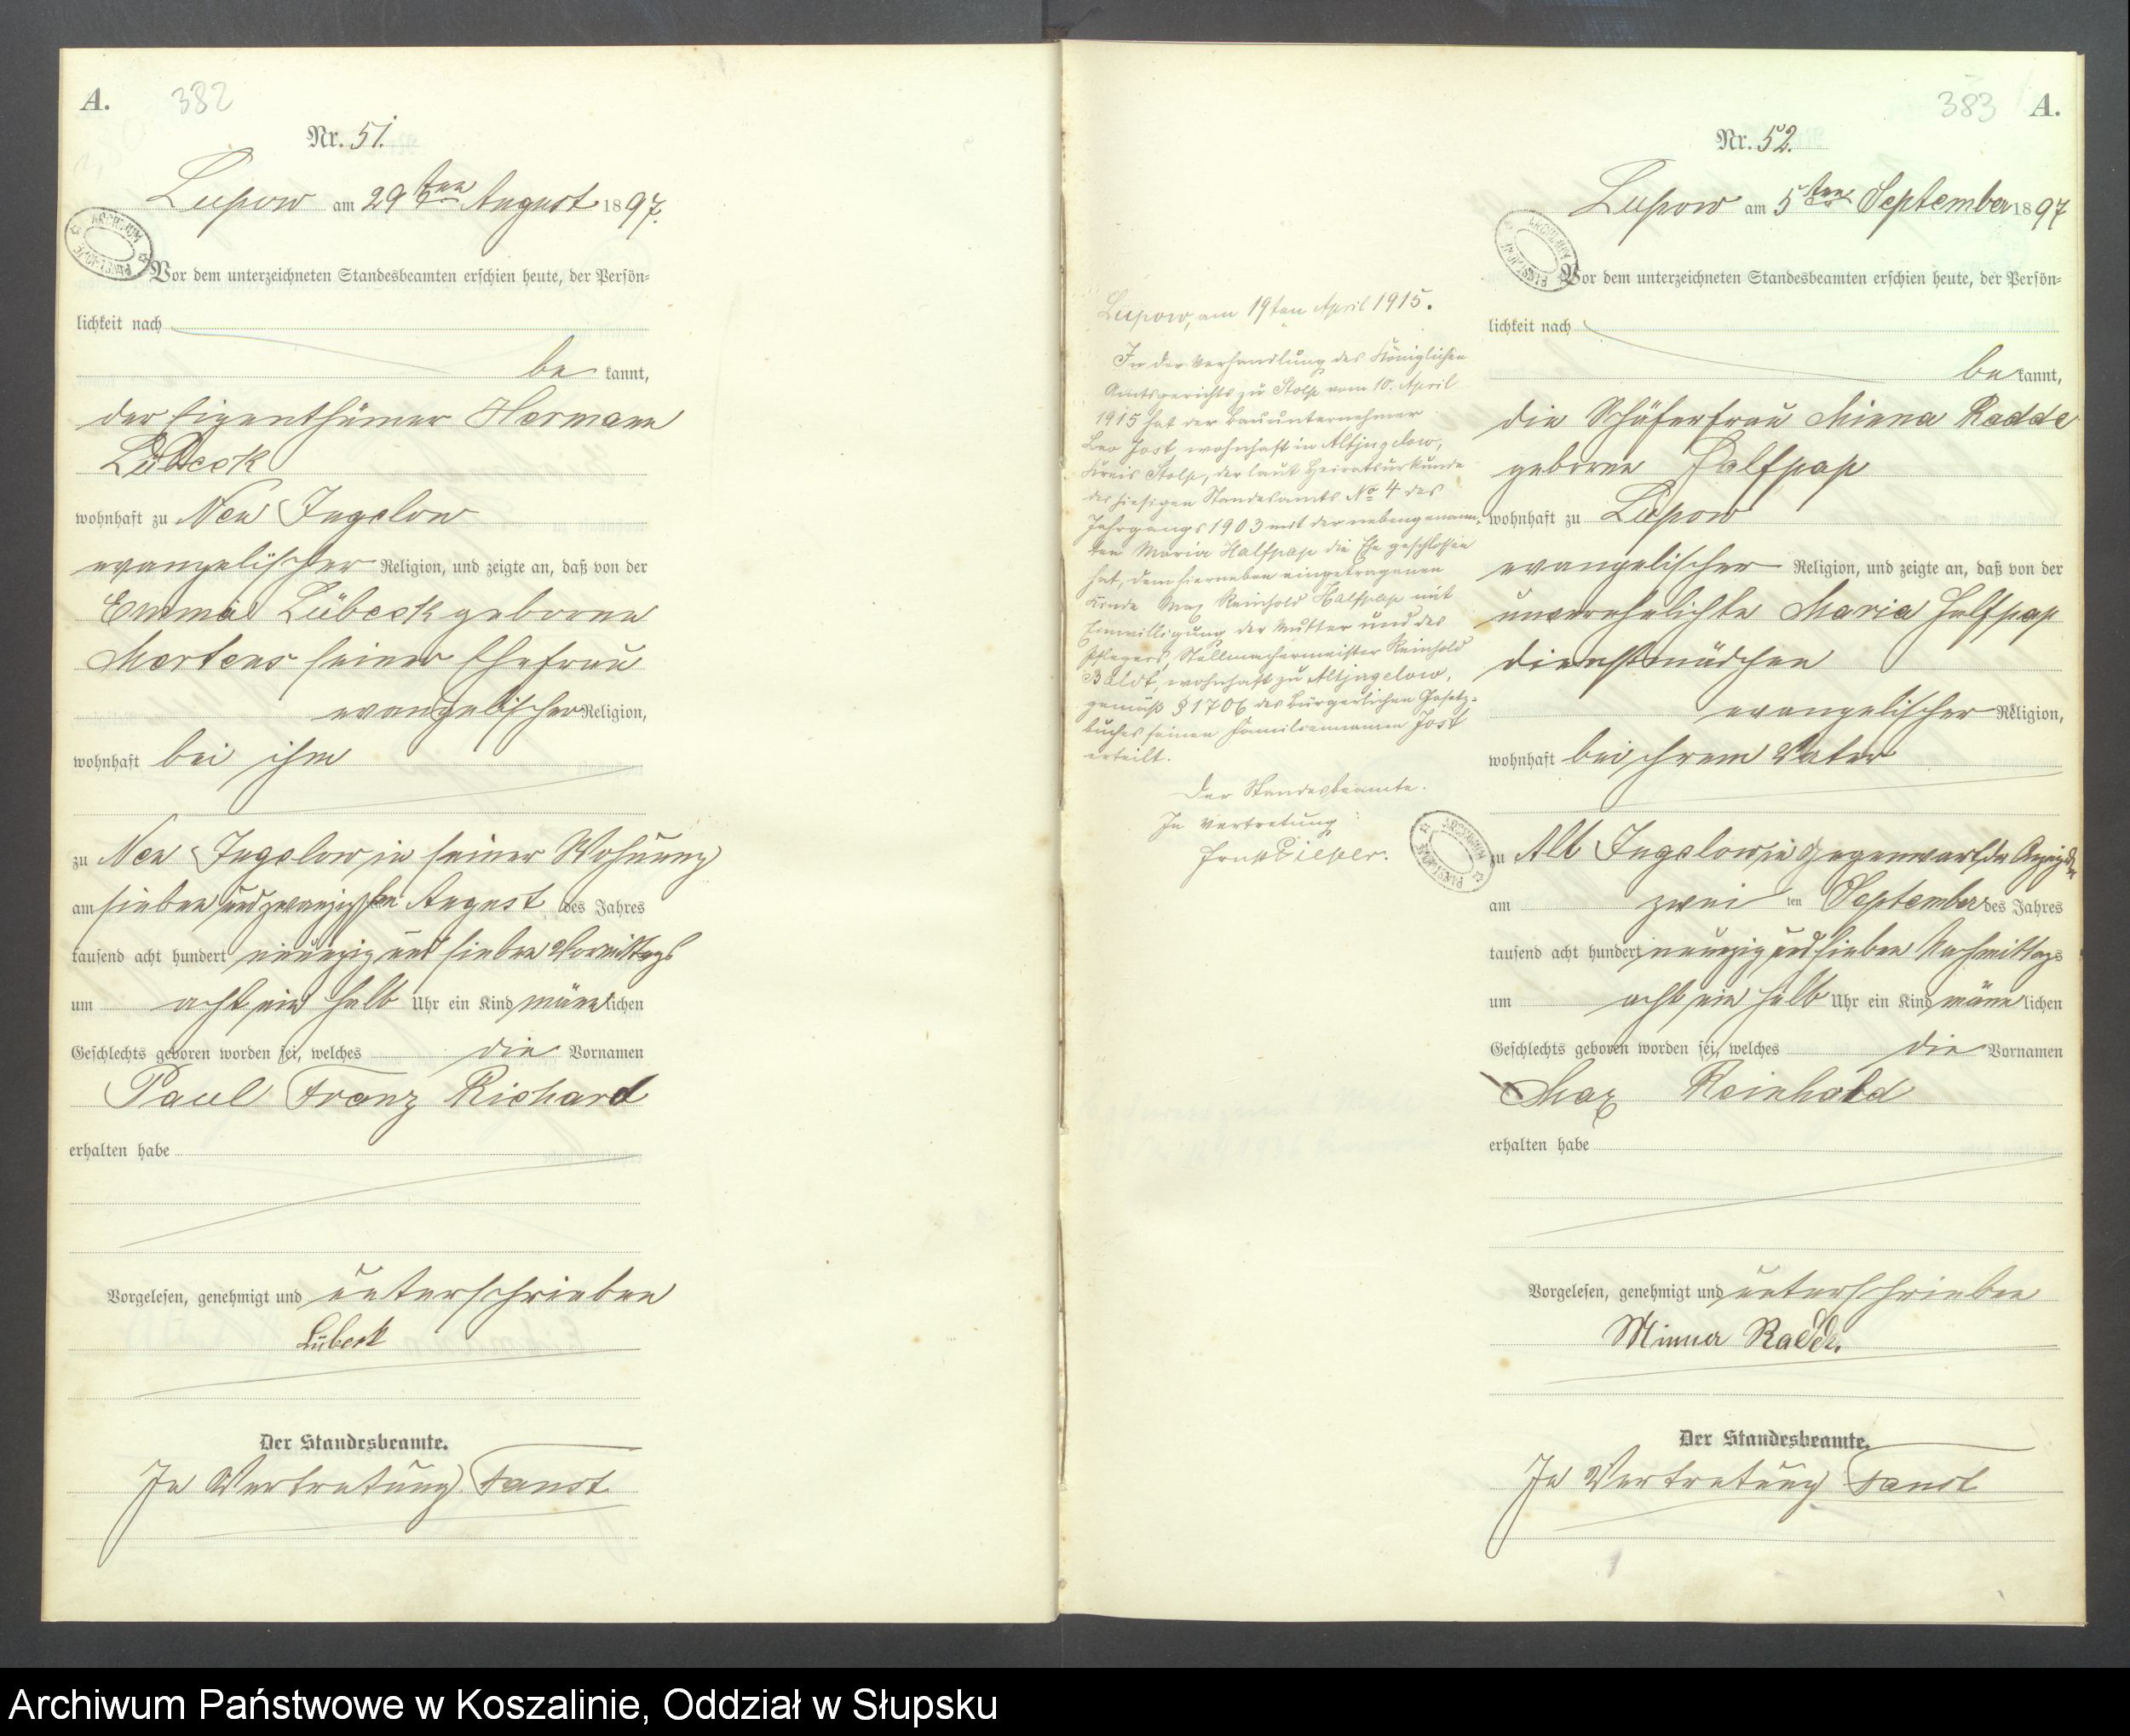 A. 382
Nr. 51.
Lupow am 29ten August 1897.
ARCHIWUM PAŃSTWOWE
Vor dem unterzeichneten Standesbeamten erschien heute, der Persön-
lichkeit nach
be kannt,
der Eigenthümer Hermann
Lübeck
wohnhaft zu Neu Jugelow
evangelischer Religion, und zeigte an, daß von der
Emma Lübeck geborene
Mertens seiner Ehefrau
evangelischer Religion,
wohnhaft bei ihm
zu Neu Jugelow in seiner Wohnung
am sieben und zwanzigsten August des Jahres
tausend acht hundert neunzig und sieben Vormittags
um acht ein halb Uhr ein Kind männlichen
Geschlechts geboren worden sei, welches die Vornamen
Paul Franz Richard
erhalten habe
Vorgelesen, genehmigt und unterschrieben
Lübeck
Der Standesbeamte.
In Vertretung Faust
383 A.
Nr. 52.
Lupow am 5ten September 1897
Vor dem unterzeichneten Standesbeamten erschien heute, der Persön-
lichkeit nach
be kannt,
die Schäferfrau Minna Radde
geborene Halfpap
wohnhaft zu Lupow
evangelischer Religion, und zeigte an, daß von der
unverehelichte Maria Halfpap
Dienstmädchen
evangelischer Religion,
wohnhaft bei ihrem Vater
zu Alt Jugelow, in Gegenwart der
am zwei ten September des Jahres
tausend acht hundert neunzig und sieben Nachmittags
um acht ein halb Uhr ein Kind männlichen
Geschlechts geboren worden sei, welches die Vornamen
Max Reinhold
erhalten habe
Vorgelesen, genehmigt und unterschrieben
Minna Radde.
Der Standesbeamte.
In Vertretung Faust
Lupow, am 19ten April 1915.
In der Verhandlung des Königlichen
Amtsgerichts zu Stolp vom 10. April
1915 hat der Bauunternehmer
Leo Jost, wohnhaft in Altjugelow,
Kreis Stolp, der laut Heiratsurkunde
des hiesigen Standesamts No 4 des
Jahrgangs 1903 mit der nebengenann-
ten Maria Halfpap die Ehe geschlossen
hat, dem hierneben eingetragenen
Kinde Max Reinhold Halfpap mit
Einwilligung der Mutter und des
Pflegers, Stellmachermeister Reinhold
wohnhaft zu Altjugelow,
gemäß § 1706 des Bürgerlichen Gesetz-
buches seinen Familiennamen Jost
erteilt.
Der Standesbeamte.
In Vertretung:
Pieper.
ARCHIWUM PAŃSTWOWE
Archiwum Państwowe w Koszalinie, Oddział w Słupsku